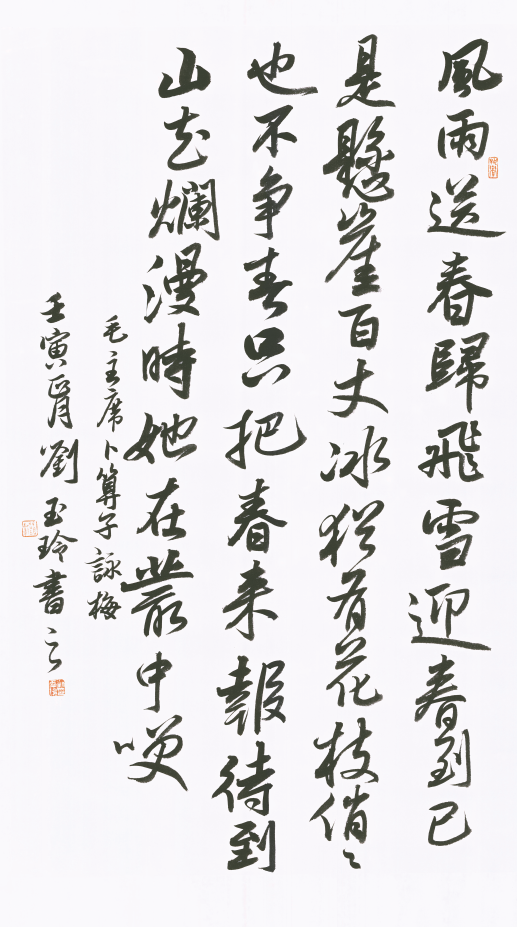 風雨送春歸飛雪迎春到已
是懸崖百丈冰猶有花枝俏
也不争春只把春来報待到
山花爛漫時她在叢中咲
毛主席卜算子詠梅
壬寅肖月劉玉玲書